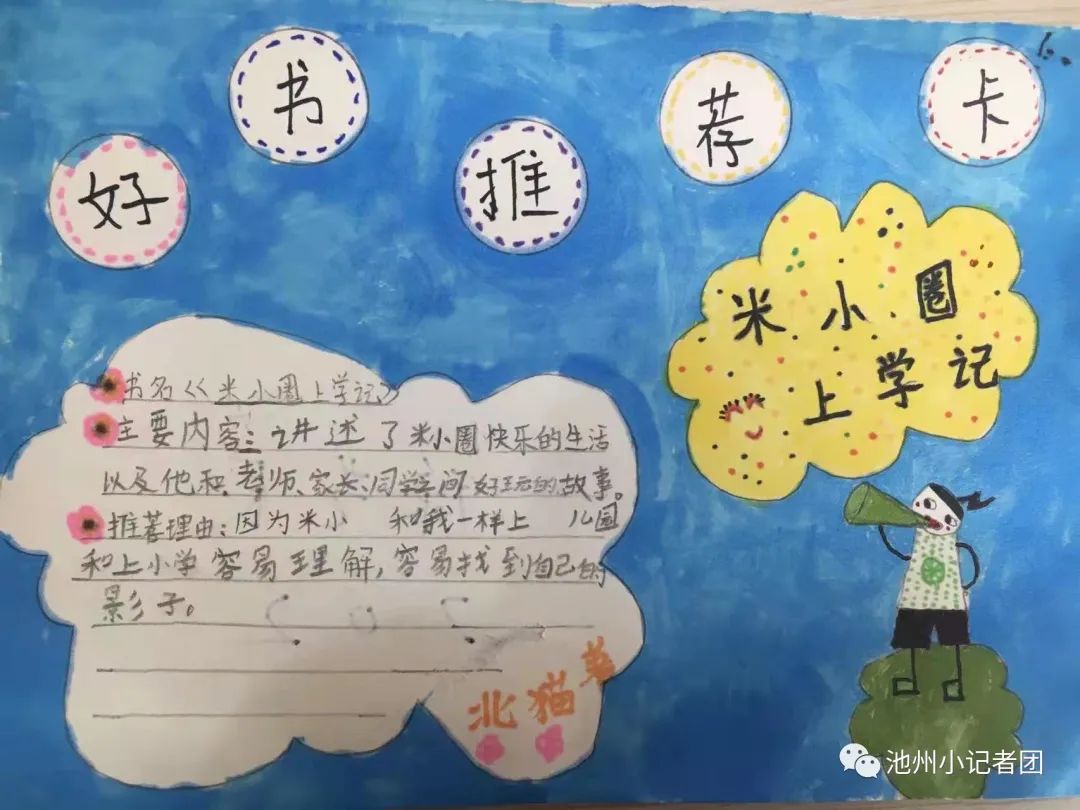 好书推荐卡
米小圈
上学记
书名《米小圈上学记》
主要内容：讲述了米小圈快乐的生活
以及他和老师、家长、同学间好玩的故事。
推荐理由：因为米小 和我一样上 儿园
和上小学容易理解，容易找到自己的
影子。
北猫
池州小记者团